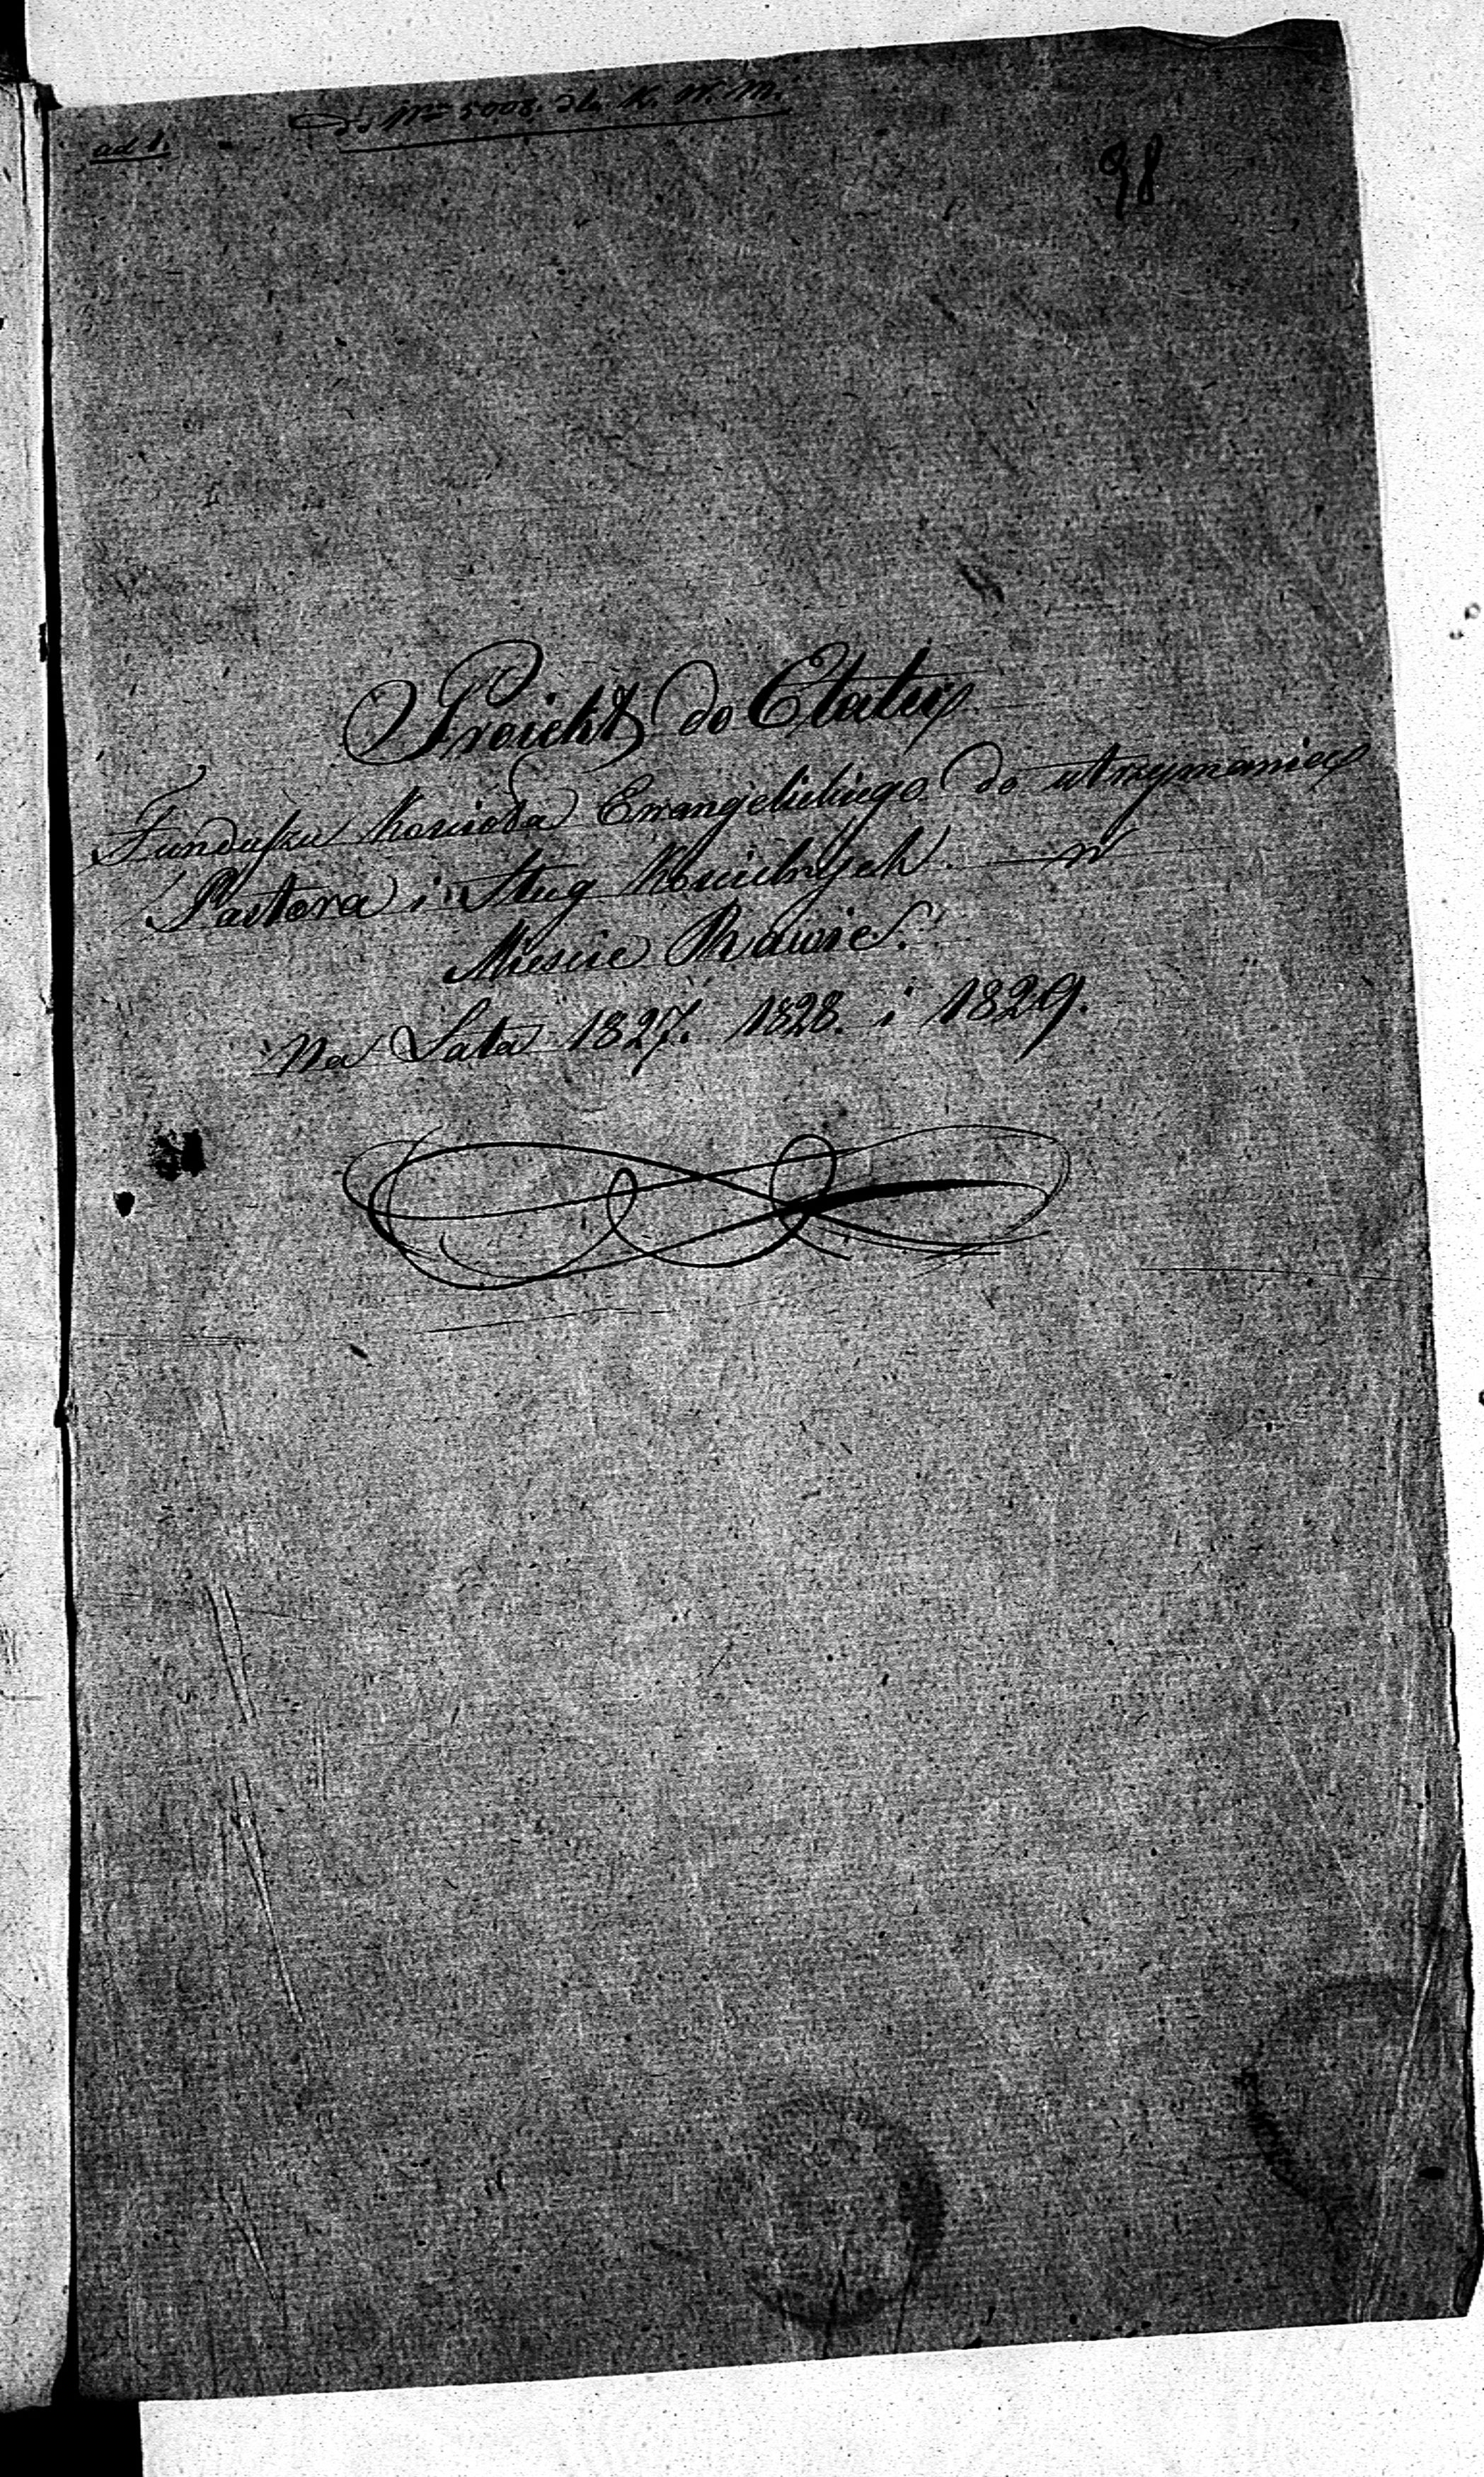 ad 1.
do Nro 5008. K. W. M.
98
Proiekt do Etatu
Funduszu Kościoła Ewangelickiego do utrzymania
Pastora i Sług Kościelnych w
Mieście Rawie.
Na Lata 1827. 1828. i 1829.